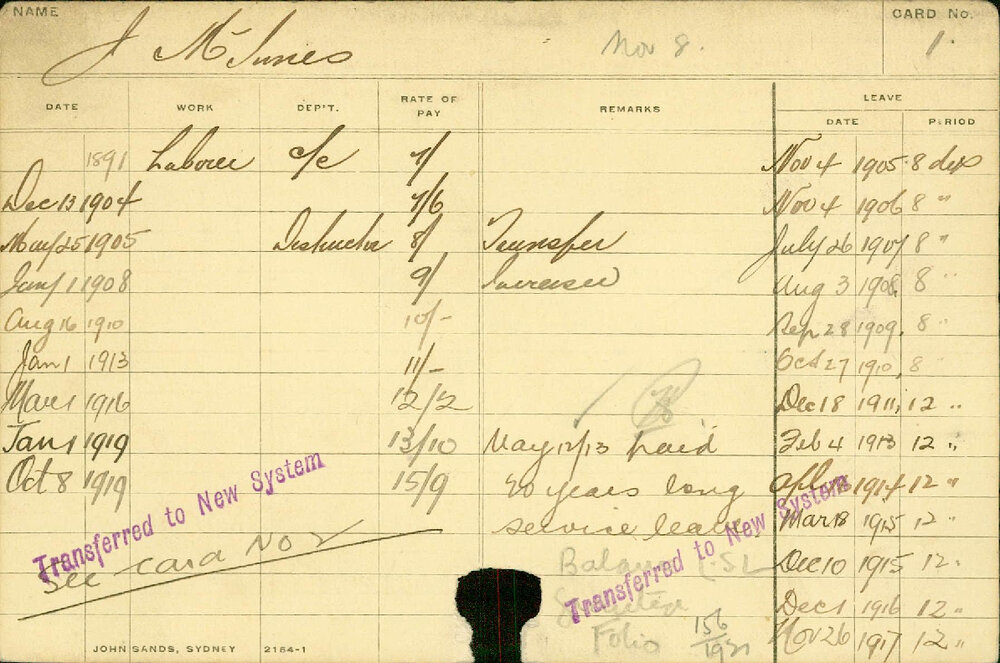 NAME CARD No.
J McInnes Nov 8. 1.
DATE WORK DEP'T. RATE OF PAY REMARKS LEAVE
DATE PERIOD
1891 Laborer c/c 7/ Nov 4 1905 8 days
Dec 13 1904 7/6 Nov 4 1906 8 "
May 25 1905 Destructor 8/ Transfer July 26 1907 8 "
Jany 1 1908 9/ Increase Aug 3 1908, 8 "
Aug 16 1910 10/- Sep 28 1909, 8 "
Jan 1 1913 11/- Oct 27 1910, 8
Mar 1 1916 12/2 Dec 18 1911, 12 "
Jan 1 1919 13/10 May 12/13 paid Feb 4 1913 12 "
Oct 8 1919 15/9 20 years long 1914 12 "
service leave Mar 13 1915 12 "
Transferred to New System
See card No 2
Balance LSL Dec 10 1915 12 "
Transferred to New System
Dec 1 1916 12 "
Folio 156/1921 Nov 26 1917 12 "
JOHN SANDS, SYDNEY 2184-1